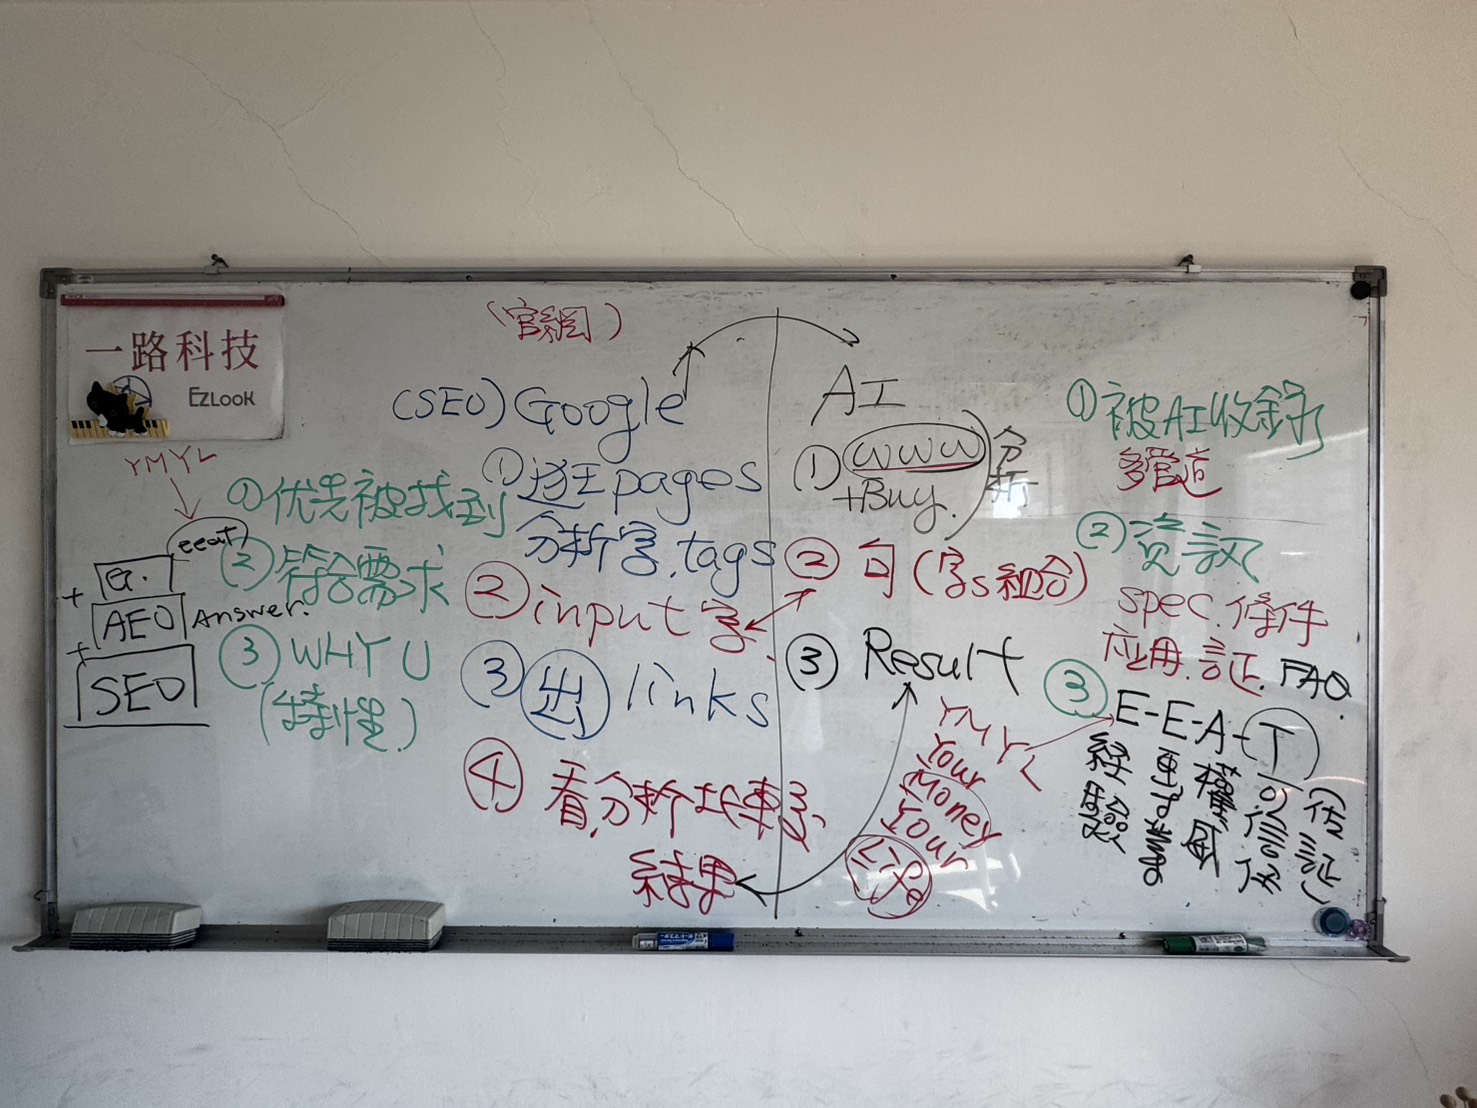 一路科技
EZLOOK
(官網)
(SEO) Google
① pages
分析字.tags
② input 字
③ 出 links
④ 看.分析.找.
結果
YMYL
eeat
① 优先被找到
② 符合需求
③ WHY U
(特性)
+ G.
+ AEO Answer.
SEO
AI
① WWW
+Buy.
分析
② 句(字s組合)
③ Result
YMYL
Your
Money
Your
Life
① 被AI收錄
多管道
② 資訊
spec.條件
应用.証.FAQ.
③ E-E-A-T
経験
專業
權威
可信度
(佐証)